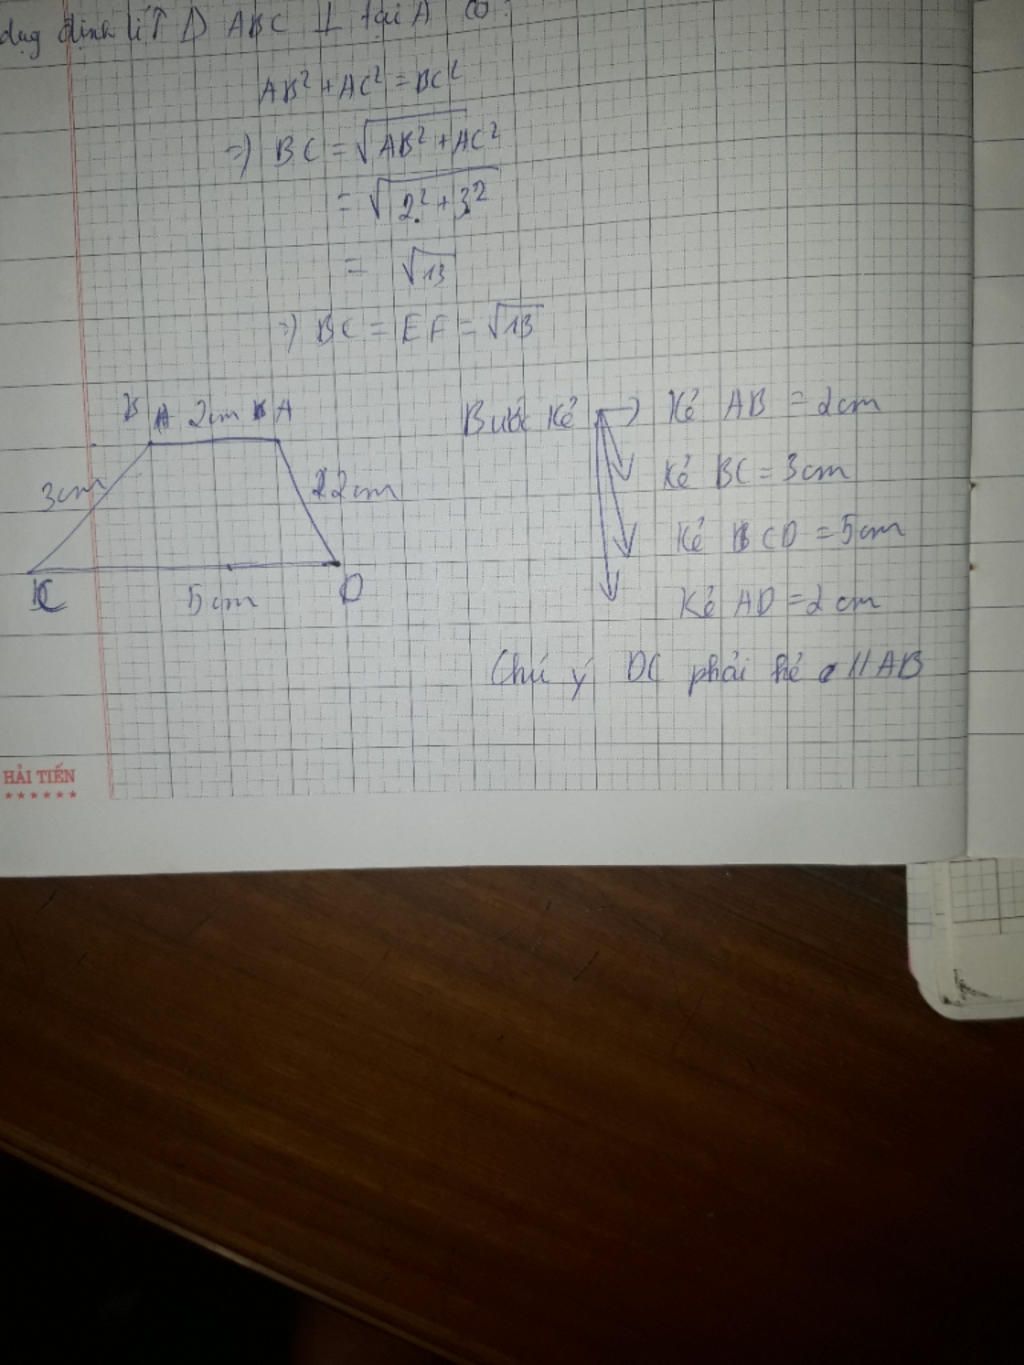 dụng định lí T Δ ABC ⊥ tại A có:
AB² + AC² = BC²
=) BC = √AB² + AC²
= √2² + 3²
= √13
=) BC = EF = √13
B A 2cm A
3cm
22cm
C 5cm D
Bước kẻ → Kẻ AB = 2cm
Kẻ BC = 3cm
Kẻ CD = 5cm
Kẻ AD = 2cm
Chú ý DC phải kẻ // AB
HẢI TIẾN